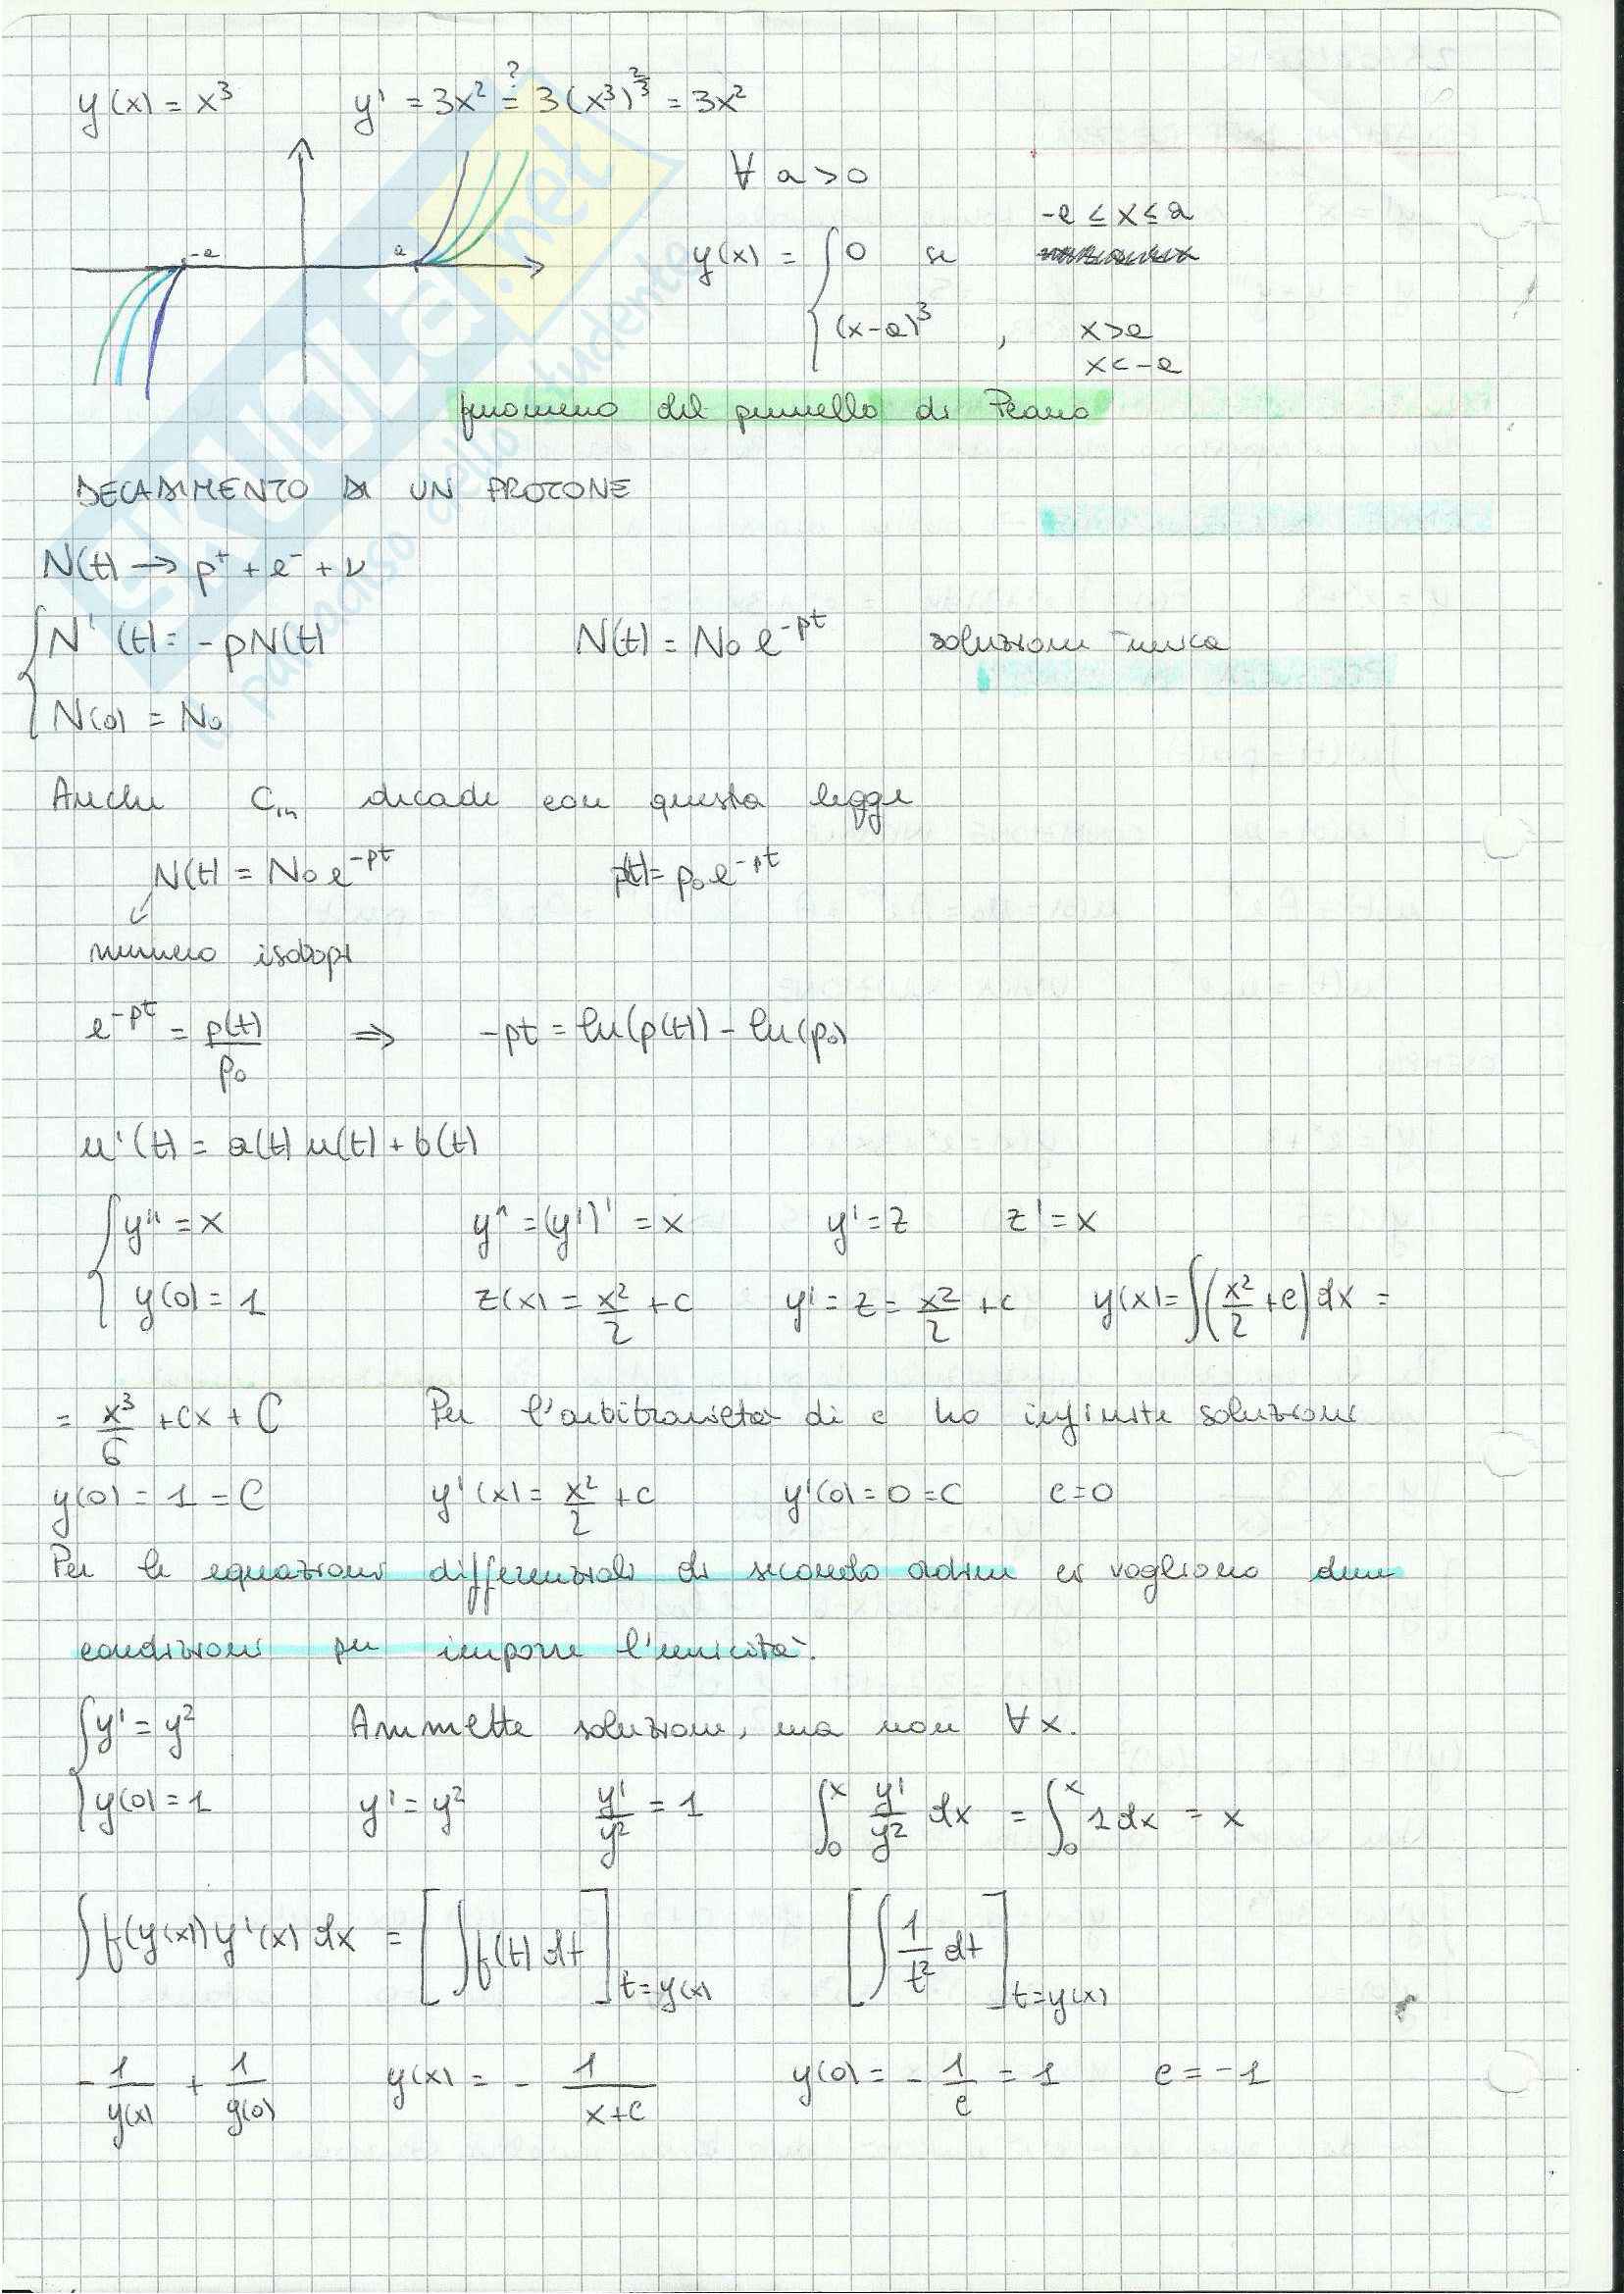 y(x) = x³ y' = 3x² ?= 3(x³)^(2/3) = 3x²
∀ a > 0
-a ≤ x ≤ a
-a a
y(x) = { 0 se
(x-a)³ , x>a
x<-a
fenomeno del pennello di Peano
DECADIMENTO DI UN PROTONE
N(t) → p⁺ + e⁻ + ν
{ N'(t) = -pN(t) N(t) = N₀ e^(-pt) soluzione unica
N(0) = N₀
Anche C₁₄ decade con questa legge
N(t) = N₀ e^(-pt) p(t) = p₀ e^(-pt)
numero isotopi
e^(-pt) = p(t)/p₀ ⇒ -pt = ln(p(t)) - ln(p₀)
u'(t) = a(t) u(t) + b(t)
{ y'' = x y'' = (y')' = x y' = z z' = x
y(0) = 1 z(x) = x²/2 + c y' = z = x²/2 + c y(x) = ∫(x²/2 + c) dx =
= x³/6 + cx + C Per l'arbitrarietà di c ho infinite soluzioni
y(0) = 1 = C y'(x) = x²/2 + c y'(0) = 0 = c c = 0
Per le equazioni differenziali di secondo ordine ci vogliono due
condizioni per imporre l'unicità.
{ y' = y² Ammette soluzione, ma non ∀ x.
y(0) = 1 y' = y² y'/y² = 1 ∫₀ˣ y'/y² dx = ∫₀ˣ 1 dx = x
∫ f(y(x)) y'(x) dx = [∫ f(t) dt] t=y(x) [∫ 1/t² dt] t=y(x)
- 1/y(x) + 1/y(0) y(x) = - 1/(x+c) y(0) = - 1/c = 1 c = -1
SKUOLA.net
il paradiso dello studente